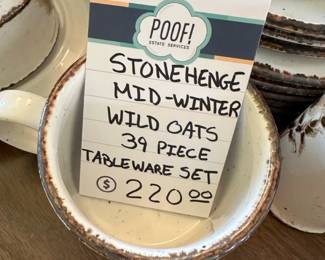 POOF!
ESTATE SERVICES
STONEHENGE
MID-WINTER
WILD OATS
39 PIECE
TABLEWARE SET
$ 220.00